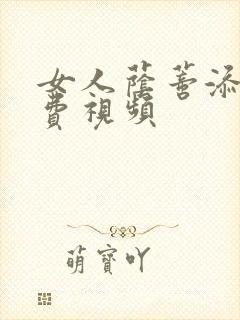 女人蔭蒂添
費視頻
萌寶吖